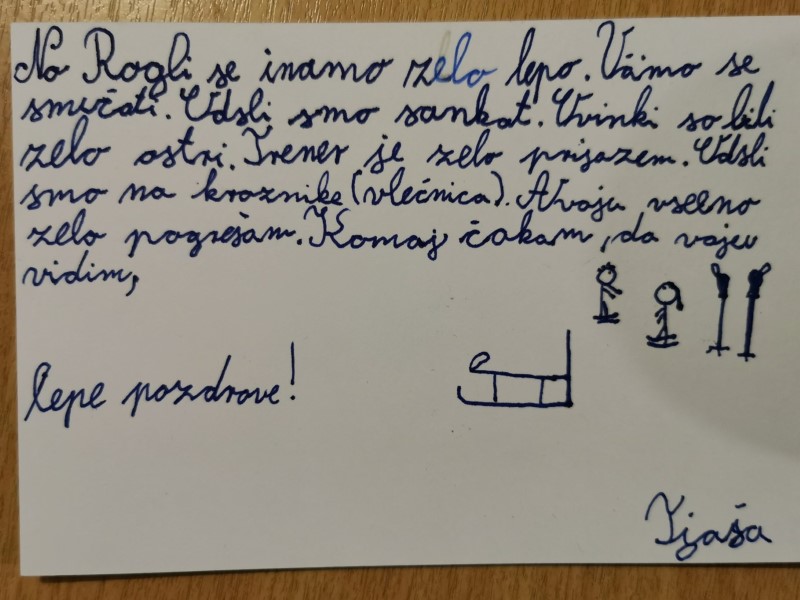 Na Rogli se imamo zelo lepo. Vamo se
smučati. Udsli smo sankat. Ovinki so bili
zelo ostri. Trener je zelo prijazem. Udsli
smo na kroznike (vlečnica). A vaju vseeno
zelo pogrešam. Komaj čakam, da vaju
vidim,
lepe pozdrave!
Tjaša